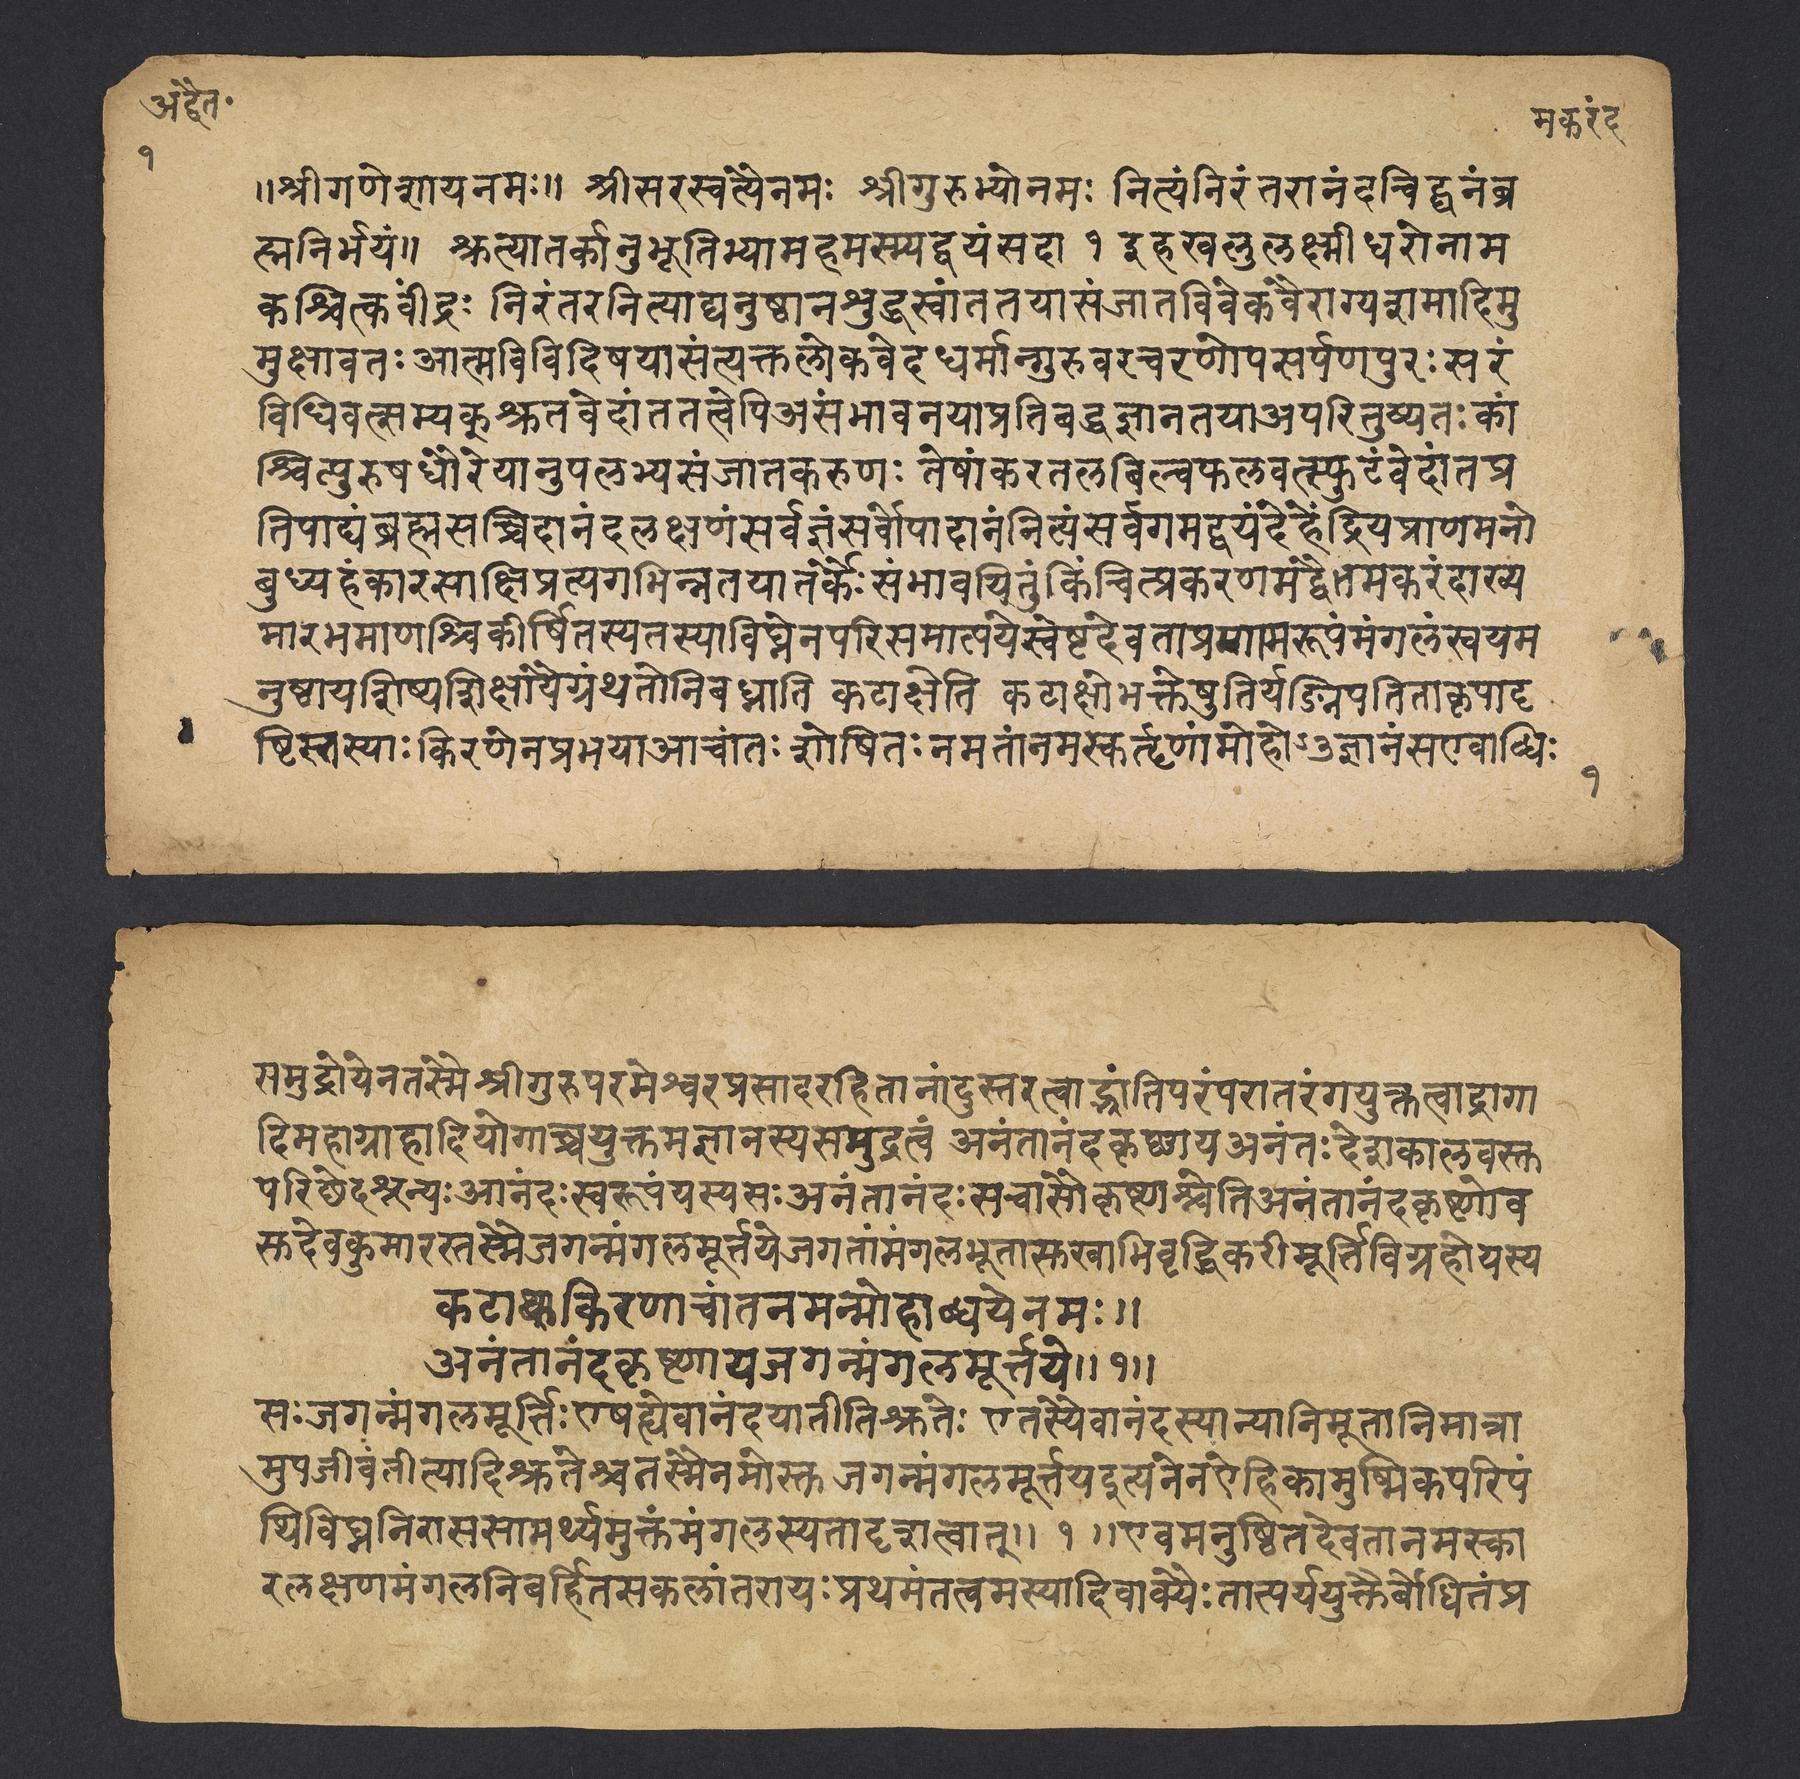 अद्वैत॰
मकरंद
१
॥श्रीगणेशायनमः॥ श्रीसरस्वत्यैनमः श्रीगुरुभ्योनमः नित्यंनिरंतरानंदचिद्घनंब्र
ह्मनिर्भयं॥ श्रुत्यातर्कानुभूतिभ्यामहमस्म्यद्वयंसदा १ इहखलुलक्ष्मीधरोनाम
कश्चित्कवींद्रः निरंतरनित्याद्यनुष्ठानशुद्धस्वांततयासंजातविवेकवैराग्यशमादिमु
मुक्षावतः आत्मविविदिषयासंत्यक्तलोकवेदधर्मान्गुरुवरचरणोपसर्पणपुरःसरं
विधिवत्सम्यक्श्रुतवेदांततत्वेपिअसंभावनयाप्रतिबद्धज्ञानतयाअपरितुष्यतः कां
श्चित्पुरुषधौरेयानुपलभ्यसंजातकरुणः तेषांकरतलबिल्वफलवत्स्फुटंवेदांतप्र
तिपाद्यंब्रह्मसच्चिदानंदलक्षणंसर्वज्ञंसर्वोपादानंनित्यंसर्वगमद्वयंदेहेंद्रियप्राणमनो
बुध्यहंकारसाक्षिप्रत्यगभिन्नतयातर्कैःसंभावयितुंकिंचित्प्रकरणमद्वैतमकरंदाख्य
मारभमाणश्चिकीर्षितस्यतस्याविघ्नेनपरिसमाप्तयेस्वेष्टदेवताप्रणामरूपंमंगलंस्वयम
नुष्ठायशिष्यशिक्षायैग्रंथतोनिबध्नाति कटाक्षेति कटाक्षोभक्तेषुतिर्यङ्निपतिताकृपादृ
ष्टिस्तस्याः किरणेनप्रभयाआचांतः शोषितः नमतांनमस्कर्तॄणांमोहोऽज्ञानंसएवाब्धिः
१
समुद्रोयेनतस्मै श्रीगुरुपरमेश्वरप्रसादरहितानांदुस्तरत्वाद्भ्रांतिपरंपरातरंगयुक्तत्वाद्रागा
दिमहाग्राहादियोगाच्चयुक्तमज्ञानस्यसमुद्रत्वं अनंतानंदकृष्णाय अनंतः देशकालवस्तु
परिछेदशून्यः आनंदः स्वरूपंयस्यसः अनंतानंदः सचासौकृष्णश्चेतिअनंतानंदकृष्णोव
सुदेवकुमारस्तस्मैजगन्मंगलमूर्त्तयेजगतांमंगलभूतासुखाभिवृद्धिकरीमूर्त्तिर्विग्रहोयस्य
कटाक्षकिरणाचांतनमन्मोहाब्धयेनमः॥
अनंतानंदकृष्णायजगन्मंगलमूर्त्तये॥१॥
सः जगन्मंगलमूर्त्तिः एषह्येवानंदयातीतिश्रुतेः एतस्यैवानंदस्यान्यानिभूतानिमात्रा
मुपजीवंतीत्यादिश्रुतेश्चतस्मैनमोस्तु जगन्मंगलमूर्त्तयइत्यनेनऐहिकामुष्मिकपरिपं
थिविघ्ननिराससामर्थ्यमुक्तंमंगलस्यतादृशत्वात्॥ १ ॥एवमनुष्ठितदेवतानमस्का
रलक्षणमंगलनिबर्हितसकलांतरायः प्रथमंतत्वमस्यादिवाक्यैः तात्पर्ययुक्तैर्बोधितंप्र